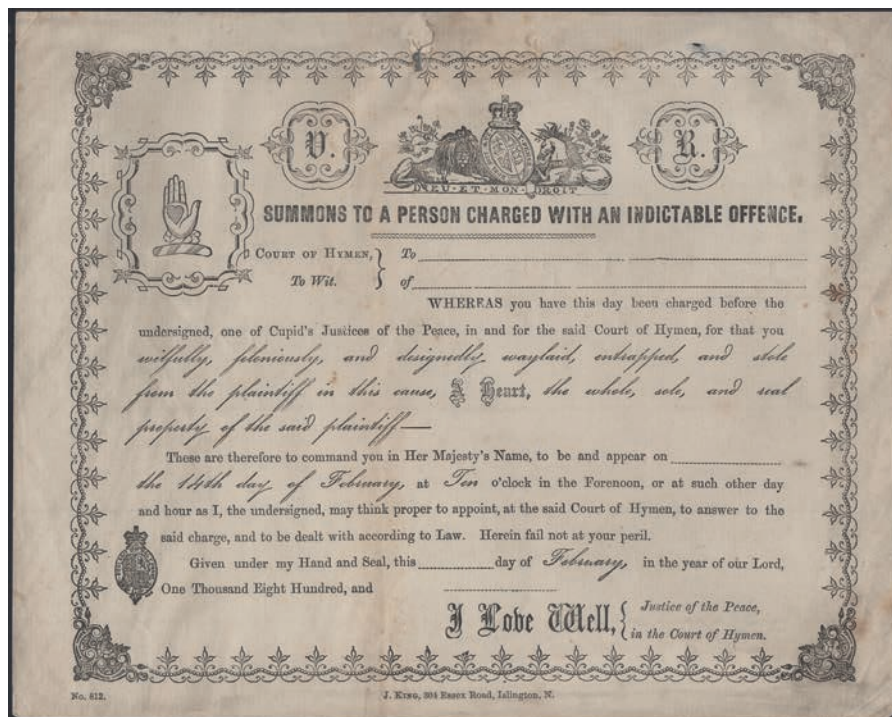 V. R.
DIEU·ET·MON·DROIT
SUMMONS TO A PERSON CHARGED WITH AN INDICTABLE OFFENCE.
COURT OF HYMEN, } To
To Wit. of
WHEREAS you have this day been charged before the
undersigned, one of Cupid's Justices of the Peace, in and for the said Court of Hymen, for that you
wilfully, feloniously, and designedly waylaid, entrapped, and stole
from the plaintiff in this cause, A Heart, the whole, sole, and real
property of the said plaintiff—
These are therefore to command you in Her Majesty's Name, to be and appear on
the 14th day of February, at Ten o'clock in the Forenoon, or at such other day
and hour as I, the undersigned, may think proper to appoint, at the said Court of Hymen, to answer to the
said charge, and to be dealt with according to Law. Herein fail not at your peril.
Given under my Hand and Seal, this day of February, in the year of our Lord,
One Thousand Eight Hundred, and
I Love Well, { Justice of the Peace,
in the Court of Hymen.
No. 812. J. KING, 304 Essex Road, Islington, N.